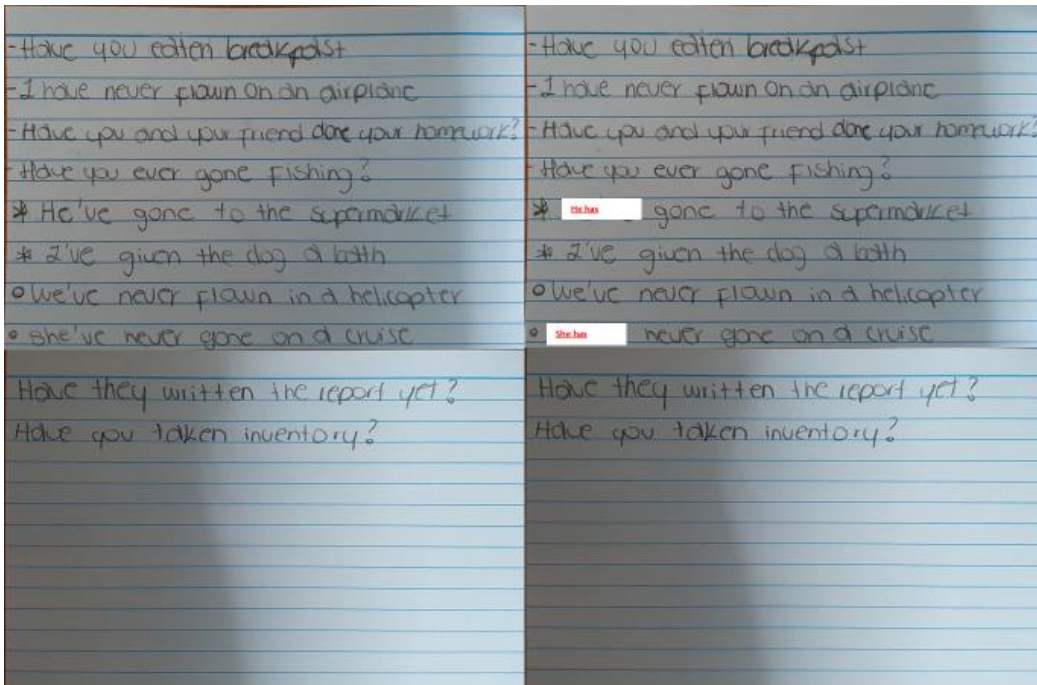 -Have you eatten breakfast
-I have never flown on an airplane
-Have you and your friend done your homework?
-Have you ever gone fishing?
* He've gone to the supermarket
* I've given the dog a bath
o We've never flown in a helicopter
o She've never gone on a cruise
Have they written the report yet?
Have you taken inventory?
-Have you eatten breakfast
-I have never flown on an airplane
-Have you and your friend done your homework?
-Have you ever gone fishing?
* He has gone to the supermarket
* I've given the dog a bath
o We've never flown in a helicopter
o She has never gone on a cruise
Have they written the report yet?
Have you taken inventory?